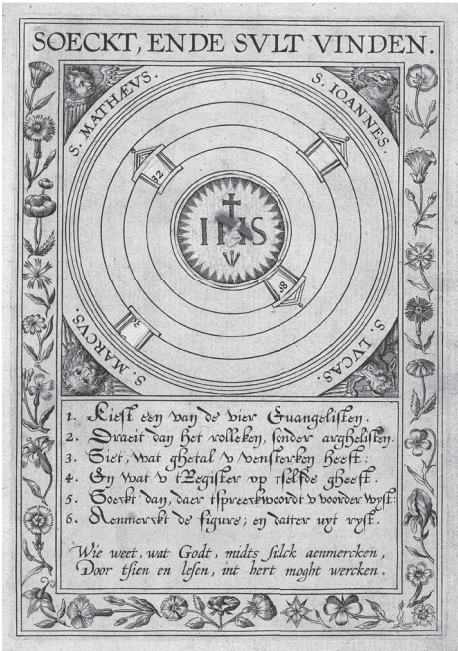 SOECKT, ENDE SVLT VINDEN.
S. MATHÆVS.
S. IOANNES.
32
IHS
38
3
S. MARCVS.
S. LVCAS.
1. Kiest een van de vier Euangelisten.
2. Draeit dan het rolleken, sonder arghelisten.
3. Siet, wat ghetal v vensterken heeft:
4. En wat v tRegister op tselfde gheeft.
5. Soeckt dan, daer tspreeckwoordt v voorder wyst:
6. Aenmerckt de figure; en datter uyt ryst.
Wie weet, wat Godt, midts sulck aenmercken,
Door tsien en lesen, int hert moght wercken.